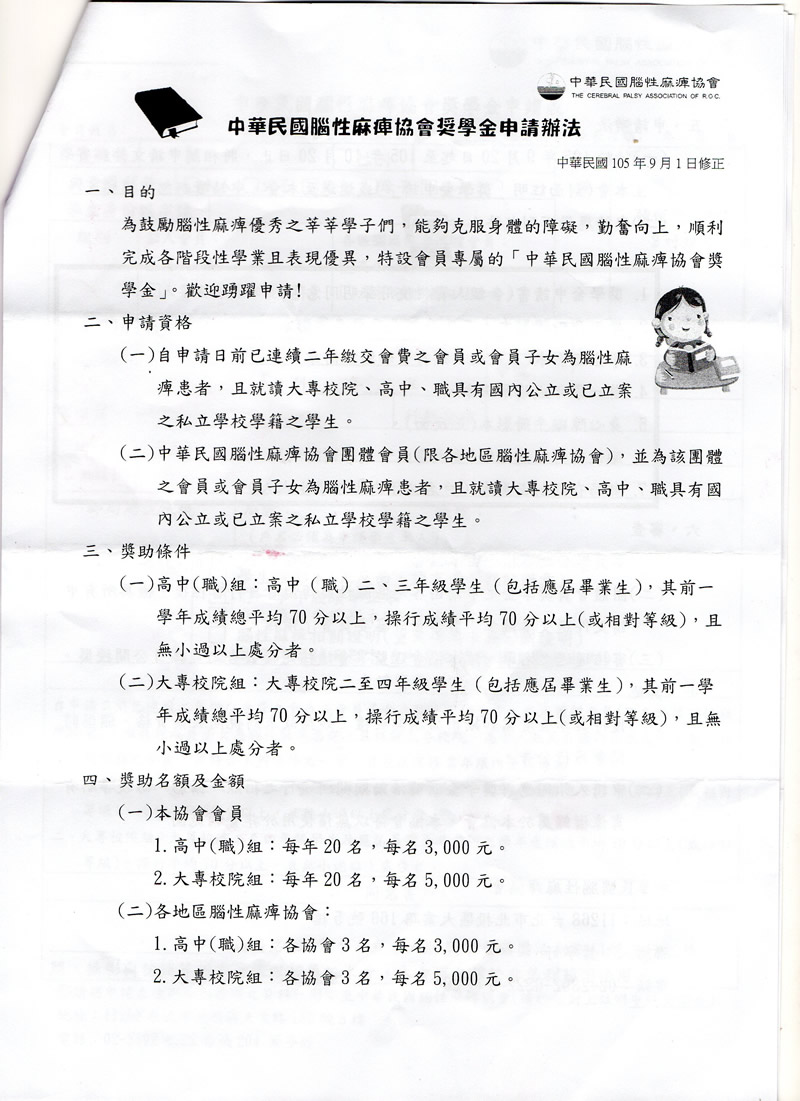 中華民國腦性麻痺協會
THE CEREBRAL PALSY ASSOCIATION OF R.O.C.
中華民國腦性麻痺協會奬學金申請辦法
中華民國 105 年 9 月 1 日修正
一、目的
為鼓勵腦性麻痺優秀之莘莘學子們，能夠克服身體的障礙，勤奮向上，順利
完成各階段性學業且表現優異，特設會員專屬的「中華民國腦性麻痺協會獎
學金」。歡迎踴躍申請!
二、申請資格
(一)自申請日前已連續二年繳交會費之會員或會員子女為腦性麻
痺患者，且就讀大專校院、高中、職具有國內公立或已立案
之私立學校學籍之學生。
(二)中華民國腦性麻痺協會團體會員(限各地區腦性麻痺協會)，並為該團體
之會員或會員子女為腦性麻痺患者，且就讀大專校院、高中、職具有國
內公立或已立案之私立學校學籍之學生。
三、獎助條件
(一)高中(職)組：高中（職）二、三年級學生（包括應屆畢業生)，其前一
學年成績總平均 70 分以上，操行成績平均 70 分以上(或相對等級)，且
無小過以上處分者。
(二)大專校院組：大專校院二至四年級學生（包括應屆畢業生)，其前一學
年成績總平均 70 分以上，操行成績平均 70 分以上(或相對等級)，且無
小過以上處分者。
四、獎助名額及金額
(一)本協會會員
1.高中(職)組：每年 20 名，每名 3,000 元。
2.大專校院組：每年 20 名，每名 5,000 元。
(二)各地區腦性麻痺協會：
1.高中(職)組：各協會 3 名，每名 3,000 元。
2.大專校院組：各協會 3 名，每名 5,000 元。